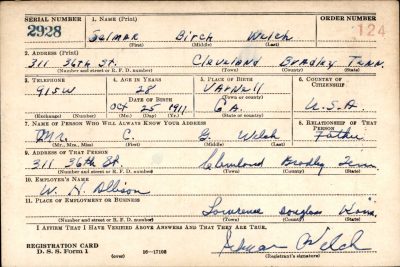 SERIAL NUMBER
1. NAME (Print)
ORDER NUMBER
2928
Birch Welch
124
(First) (Middle) (Last)
2. ADDRESS (Print)
311 36th St. Cleveland Bradley Tenn.
(Number and street or R. F. D. number) (Town) (County) (State)
3. TELEPHONE
4. AGE IN YEARS
5. PLACE OF BIRTH
6. COUNTRY OF CITIZENSHIP
915W
28
Varnell
DATE OF BIRTH
(Town or county)
U.S.A
Oct 25 1911
GA.
(Exchange) (Number)
(Mo.) (Day) (Yr.)
(State or country)
7. NAME OF PERSON WHO WILL ALWAYS KNOW YOUR ADDRESS
8. RELATIONSHIP OF THAT PERSON
Mr. C. G. Welch Father
(Mr., Mrs., Miss) (First) (Middle) (Last)
9. ADDRESS OF THAT PERSON
311 36th St. Cleveland Bradley Tenn
(Number and street or R. F. D. number) (Town) (County) (State)
10. EMPLOYER'S NAME
W. H. Allison
11. PLACE OF EMPLOYMENT OR BUSINESS
Lawrence Douglas Kans.
(Number and street or R. F. D. number) (Town) (County) (State)
I AFFIRM THAT I HAVE VERIFIED ABOVE ANSWERS AND THAT THEY ARE TRUE.
REGISTRATION CARD
D. S. S. Form 1
(over)
16—17105
Welch
(Registrant's signature)